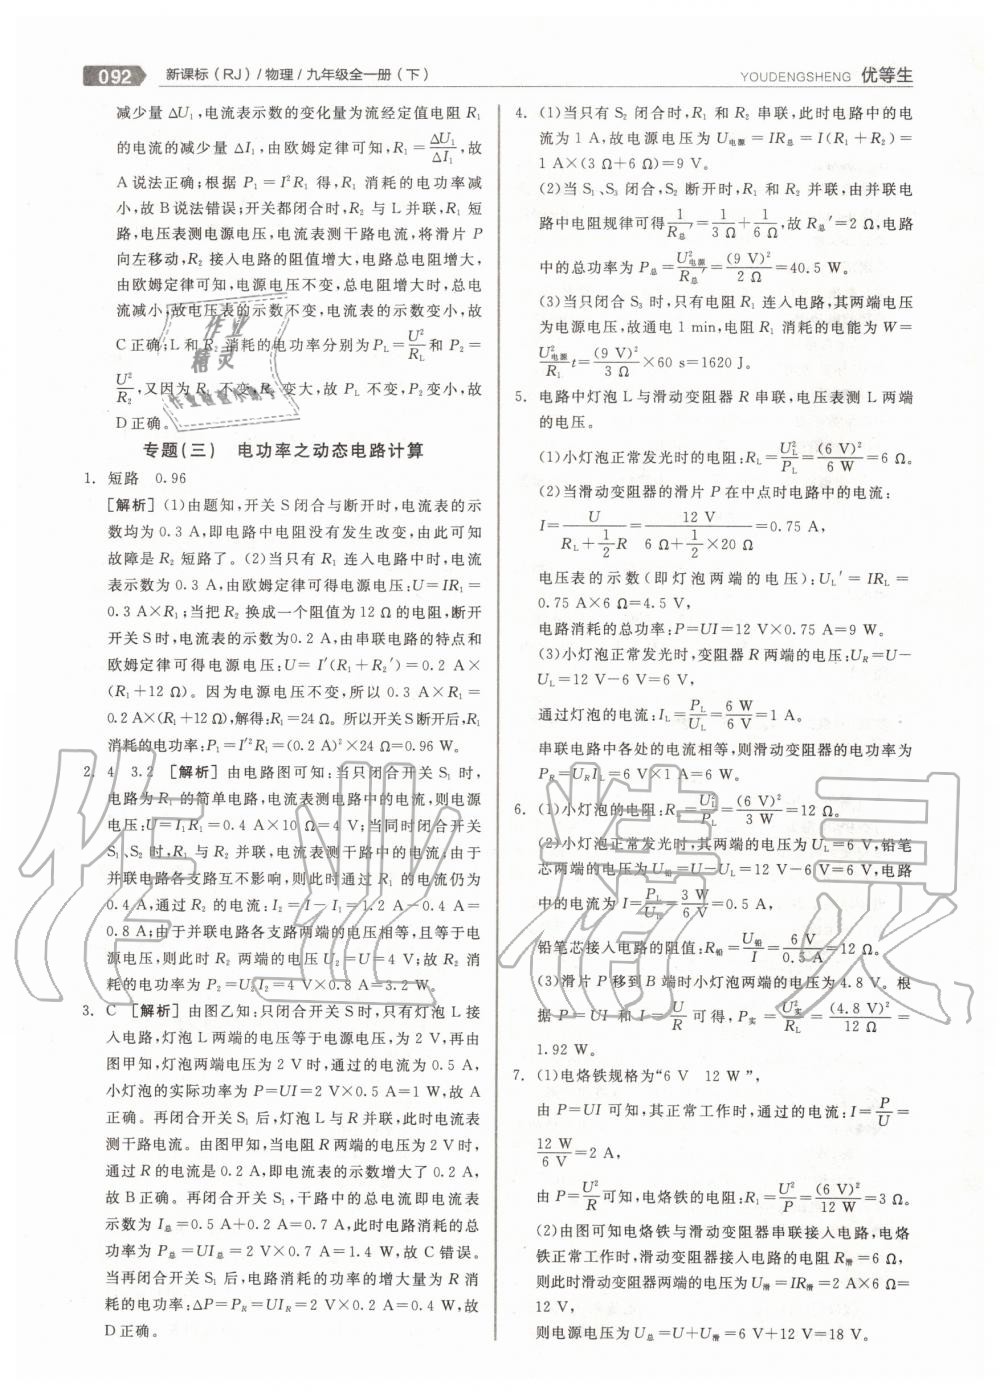 092 新课标(RJ)/物理/九年级全一册(下)
YOUDENGSHENG 优等生
减少量 ΔU₁,电流表示数的变化量为流经定值电阻 R₁
的电流的减少量 ΔI₁,由欧姆定律可知,R₁=ΔU₁/ΔI₁,故
A说法正确;根据 P₁=I²R₁ 得,R₁ 消耗的电功率减
小,故B说法错误;开关都闭合时,R₂ 与 L 并联,R₁ 短
路,电压表测电源电压,电流表测干路电流,将滑片 P
向左移动,R₂ 接入电路的阻值增大,电路总电阻增大,
由欧姆定律可知,电源电压不变,总电阻增大时,总电
流减小,故电压表的示数不变,电流表示数变小,故
C正确;L 和 R₂ 消耗的电功率分别为 P_L=U²/R_L 和 P₂=
U²/R₂,又因为 R_L 不变,R₂ 变大,故 P_L 不变,P₂ 变小,故
D正确。
专题(三) 电功率之动态电路计算
1. 短路 0.96
[解析] (1)由题知,开关S闭合与断开时,电流表的示
数均为0.3 A,即电路中电阻没有发生改变,由此可知
故障是 R₂ 短路了。(2)当只有 R₁ 连入电路中时,电流
表示数为 0.3 A,由欧姆定律可得电源电压:U=IR₁=
0.3 A×R₁;当把 R₂ 换成一个阻值为12 Ω的电阻,断开
开关S时,电流表的示数为0.2 A,由串联电路的特点和
欧姆定律可得电源电压:U=I′(R₁+R₂′)=0.2 A×
(R₁+12 Ω)。因为电源电压不变,所以 0.3 A×R₁=
0.2 A×(R₁+12 Ω),解得:R₁=24 Ω。所以开关S断开后,R₁
消耗的电功率:P₁=I′²R₁=(0.2 A)²×24 Ω=0.96 W。
2. 4 3.2 [解析] 由电路图可知:当只闭合开关 S₁ 时,
电路为 R₁ 的简单电路,电流表测电路中的电流,则电源
电压:U=I₁R₁=0.4 A×10 Ω=4 V;当同时闭合开关
S₁、S₂ 时,R₁ 与 R₂ 并联,电流表测干路中的电流;由于
并联电路各支路互不影响,则此时通过 R₁ 的电流仍为
0.4 A,通过 R₂ 的电流:I₂=I-I₁=1.2 A-0.4 A=
0.8 A;由于并联电路各支路两端的电压相等,且等于电
源电压,则此时 R₂ 两端的电压 U₂=U=4 V;故 R₂ 消
耗的电功率为 P₂=U₂I₂=4 V×0.8 A=3.2 W。
3. C [解析] 由图乙可知:只闭合开关 S 时,只有灯泡 L 接
入电路,灯泡 L 两端的电压等于电源电压,为 2 V,再由
图甲知,灯泡两端电压为 2 V 时,通过的电流为 0.5 A,
小灯泡的实际功率为 P=UI=2 V×0.5 A=1 W,故 A
正确。再闭合开关 S₁ 后,灯泡 L 与 R 并联,此时电流表
测干路电流。由图甲知,当电阻 R 两端的电压为 2 V 时,
通过 R 的电流是 0.2 A,即电流表的示数增大了 0.2 A,
故B正确。再闭合开关 S₁,干路中的总电流即电流表
示数为 I总=0.5 A+0.2 A=0.7 A,此时电路消耗的总
功率为 P总=UI总=2 V×0.7 A=1.4 W,故 C 错误。
当再闭合开关 S₁ 后,电路消耗的功率的增大量为 R 消
耗的电功率:ΔP=P_R=UI_R=2 V×0.2 A=0.4 W,故
D正确。
4. (1)当只有 S₂ 闭合时,R₁ 和 R₂ 串联,此时电路中的电
流为 1 A,故电源电压为 U电源=IR总=I(R₁+R₂)=
1 A×(3 Ω+6 Ω)=9 V。
(2)当 S₁、S₃ 闭合,S₂ 断开时,R₁ 和 R₂ 并联,由并联电
路中电阻规律可得1/R总′=1/3 Ω+1/6 Ω,故 R总′=2 Ω,电路
中的总功率为 P总=U²电源/R总′=(9 V)²/2 Ω=40.5 W。
(3)当只闭合 S₃ 时,只有电阻 R₁ 连入电路,其两端电压
为电源电压,故通电 1 min,电阻 R₁ 消耗的电能为 W=
U²电源/R₁ t=(9 V)²/3 Ω×60 s=1620 J。
5. 电路中灯泡 L 与滑动变阻器 R 串联,电压表测 L 两端
的电压。
(1)小灯泡正常发光时的电阻:R_L=U_L²/P_L=(6 V)²/6 W=6 Ω。
(2)当滑动变阻器的滑片 P 在中点时电路中的电流:
I=U/(R_L+½R)=12 V/(6 Ω+½×20 Ω)=0.75 A,
电压表的示数(即灯泡两端的电压):U_L′=IR_L=
0.75 A×6 Ω=4.5 V,
电路消耗的总功率:P=UI=12 V×0.75 A=9 W。
(3)小灯泡正常发光时,变阻器 R 两端的电压:U_R=U-
U_L=12 V-6 V=6 V,
通过灯泡的电流:I_L=P_L/U_L=6 W/6 V=1 A。
串联电路中各处的电流相等,则滑动变阻器的功率为
P_R=U_RI_L=6 V×1 A=6 W。
6. (1)小灯泡的电阻:R_L=U_L²/P_L=(6 V)²/3 W=12 Ω。
(2)小灯泡正常发光时,其两端的电压为U_L=6 V,铅笔
芯两端的电压为 U铅=U-U_L=12 V-6 V=6 V,电路
中的电流为 I=P_L/U_L=3 W/6 V=0.5 A,
铅笔芯接入电路的阻值:R铅=U铅/I=6 V/0.5 A=12 Ω。
(3)滑片 P 移到 B 端时小灯泡两端的电压为4.8 V。根
据 P=UI 和 I=U/R 可得,P实=U²实/R_L=(4.8 V)²/12 Ω=
1.92 W。
7. (1)电烙铁规格为“6 V 12 W”,
由 P=UI 可知,其正常工作时,通过的电流:I=P/U=
12 W/6 V=2 A,
由 P=U²/R可知,电烙铁的电阻:R=U²/P=(6 V)²/12 W=3 Ω。
(2)由图可知电烙铁与滑动变阻器串联接入电路,电烙
铁正常工作时,滑动变阻器接入电路的电阻 R滑=6 Ω,
则此时滑动变阻器两端的电压为 U滑=IR滑=2 A×6 Ω=
12 V,
则电源电压为 U总=U+U滑=6 V+12 V=18 V。
作业精灵
作业
精灵